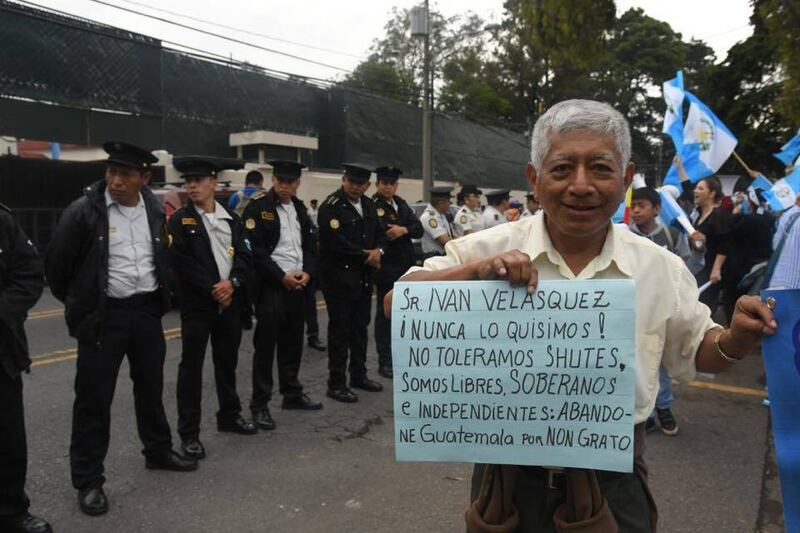 SR. IVAN VELASQUEZ
¡NUNCA LO QUISIMOS!
NO TOLERAMOS SHUTES,
SOMOS LIBRES, SOBERANOS
e INDEPENDIENTES: ABANDO-
NE GUATEMALA POR NON GRATO